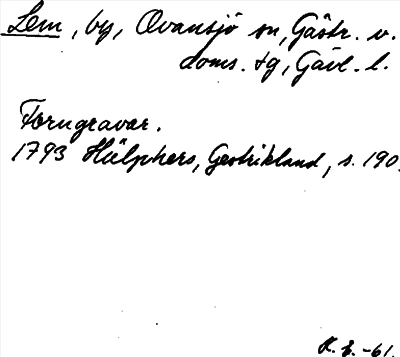 Lem, by, Ovansjö sn, Gästr. v.
doms. tg, Gävl. l.
Forngravar.
1793 Hülphers, Gestrikland, s. 190.
K. E. -61.